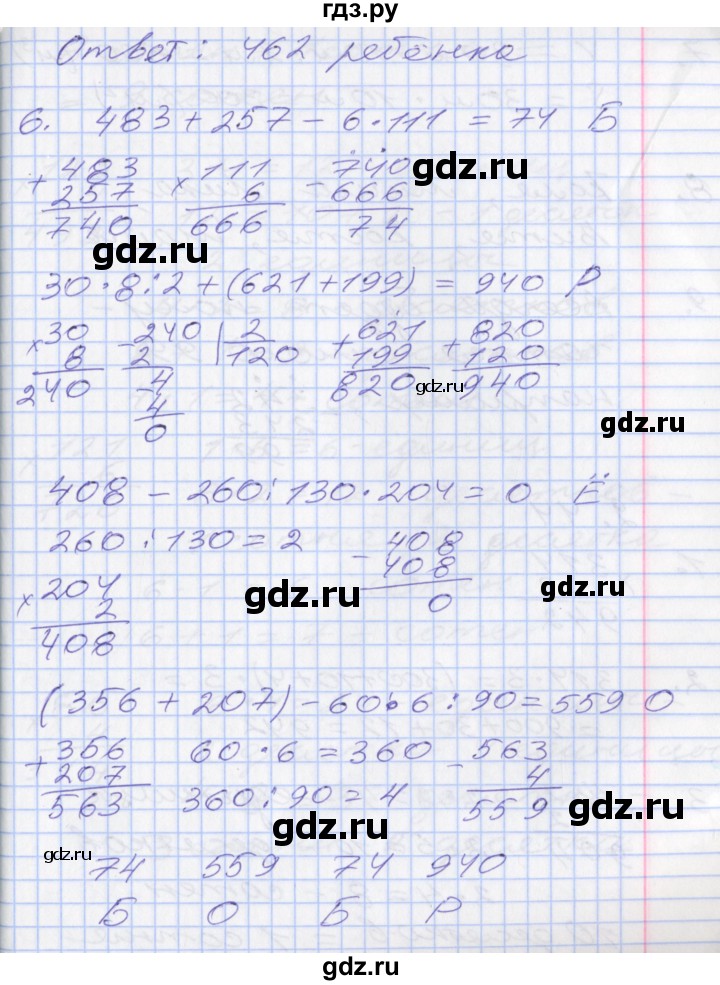 гдз.ру
Ответ: 462 ребёнка
6. 483 + 257 - 6 · 111 = 74 Б
+ 483 × 111 - 740
257 6 666
740 666 74
gdz.ru
gdz.ru
30 · 8 : 2 + (621 + 199) = 940 Р
× 30 - 240 | 2 + 621 + 820
8 2 120 199 120
240 4 820 940
4
0
gdz.ru
gdz.ru
408 - 260 : 130 · 204 = 0 Ё
260 : 130 = 2 - 408
× 204 408
2 0
408
gdz.ru
gdz.ru
(356 + 207) - 60 · 6 : 90 = 559 О
+ 356 60 · 6 = 360 - 563
207 360 : 90 = 4 4
563 559
gdz.ru
gdz.ru
gdz.ru
74 559 74 940
Б О Б Р
gdz.ru
gdz.ru